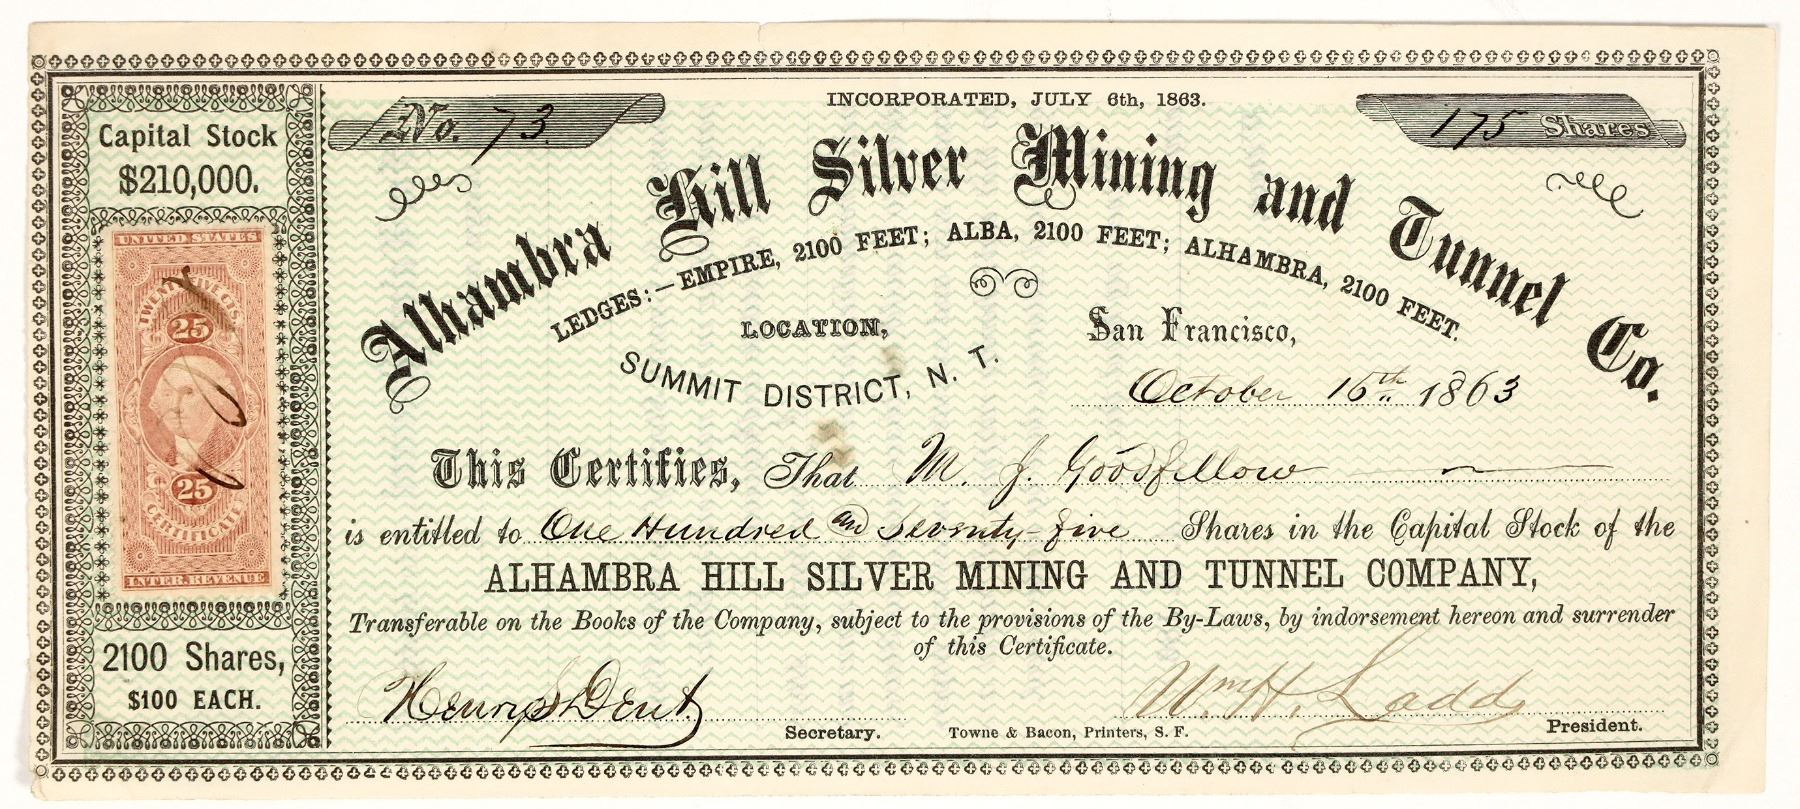 INCORPORATED, JULY 6th, 1863.
No. 73.
175 Shares
Capital Stock
$210,000.
Alhambra Hill Silver Mining and Tunnel Co.
LEDGES:—EMPIRE, 2100 FEET; ALBA, 2100 FEET; ALHAMBRA, 2100 FEET.
LOCATION,
SUMMIT DISTRICT, N. T.
San Francisco,
October 16th 1863
UNITED STATES
TWENTY FIVE CTS.
25
25
CERTIFICATE
INTER. REVENUE
This Certifies, That M. J. Goodfellow
is entitled to One Hundred and Seventy-five Shares in the Capital Stock of the
ALHAMBRA HILL SILVER MINING AND TUNNEL COMPANY,
Transferable on the Books of the Company, subject to the provisions of the By-Laws, by indorsement hereon and surrender
of this Certificate.
2100 Shares,
$100 EACH.
Henry S Dent
Secretary.
Towne & Bacon, Printers, S. F.
Wm H. Ladd
President.